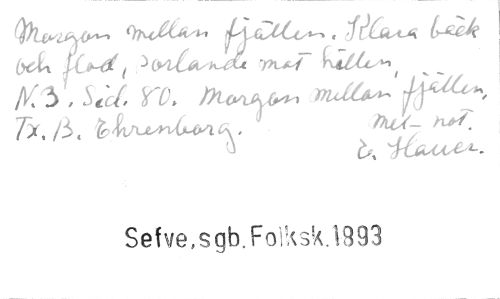 Morgon mellan fjällen. Klara bäck
och flod, sorlande mot hällen,
N.3. Sid. 80. Morgon mellan fjällen,
Tx. B. Ehrenborg. mel- not.
E. Hauer.
Sefve, sgb. Folksk. 1893